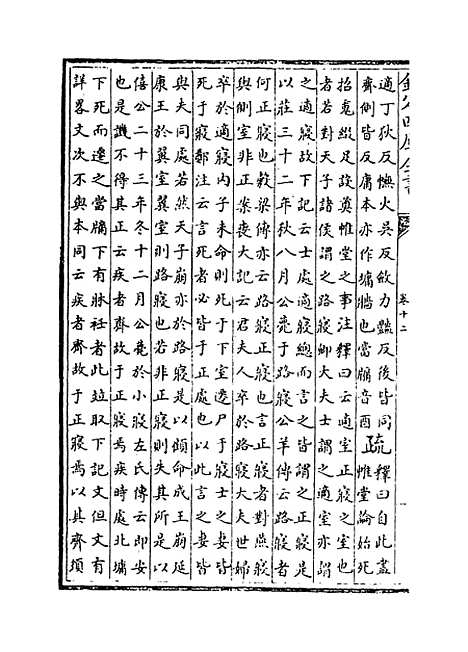 欽定四庫全書
卷十二
適丁狄反幠火吳反斂力豔反後皆同
齊側皆反庸本亦作墉牆也當牖音酉
疏
釋曰自此盡
惟堂論始死
招䰟綴足設奠惟堂之事注釋曰云適室正寢之室也
者若對天子諸侯謂之路寢卿大夫士謂之適室亦謂
之適寢故下記云士處適寢總而言之皆謂之正寢是
以莊三十二年秋八月公薨于路寢公羊傳云路寢者
何正寢也穀梁傳亦云路寢正寢也言正寢者對燕寢
與側室非正案喪大記云君夫人卒於路寢大夫世婦
卒於適寢内子未命則死于下室遷尸于寢士之妻皆
死于寢鄭注云言死者必皆于正處也以此言之妻皆
與夫同處若然天子崩亦於路寢是以顧命成王崩延
康王於翼室翼室則路寢也若非正寢則失其所是以
僖公二十三年冬十二月公薨於小寢左氏傳云即安
也是譏不得其正云疾者齊故于正寢焉疾時處北墉
下死而遷之當牖下有牀衽者此竝取下記文但文有
詳畧文次不與本同云疾者齊故于正寢焉以其齊須